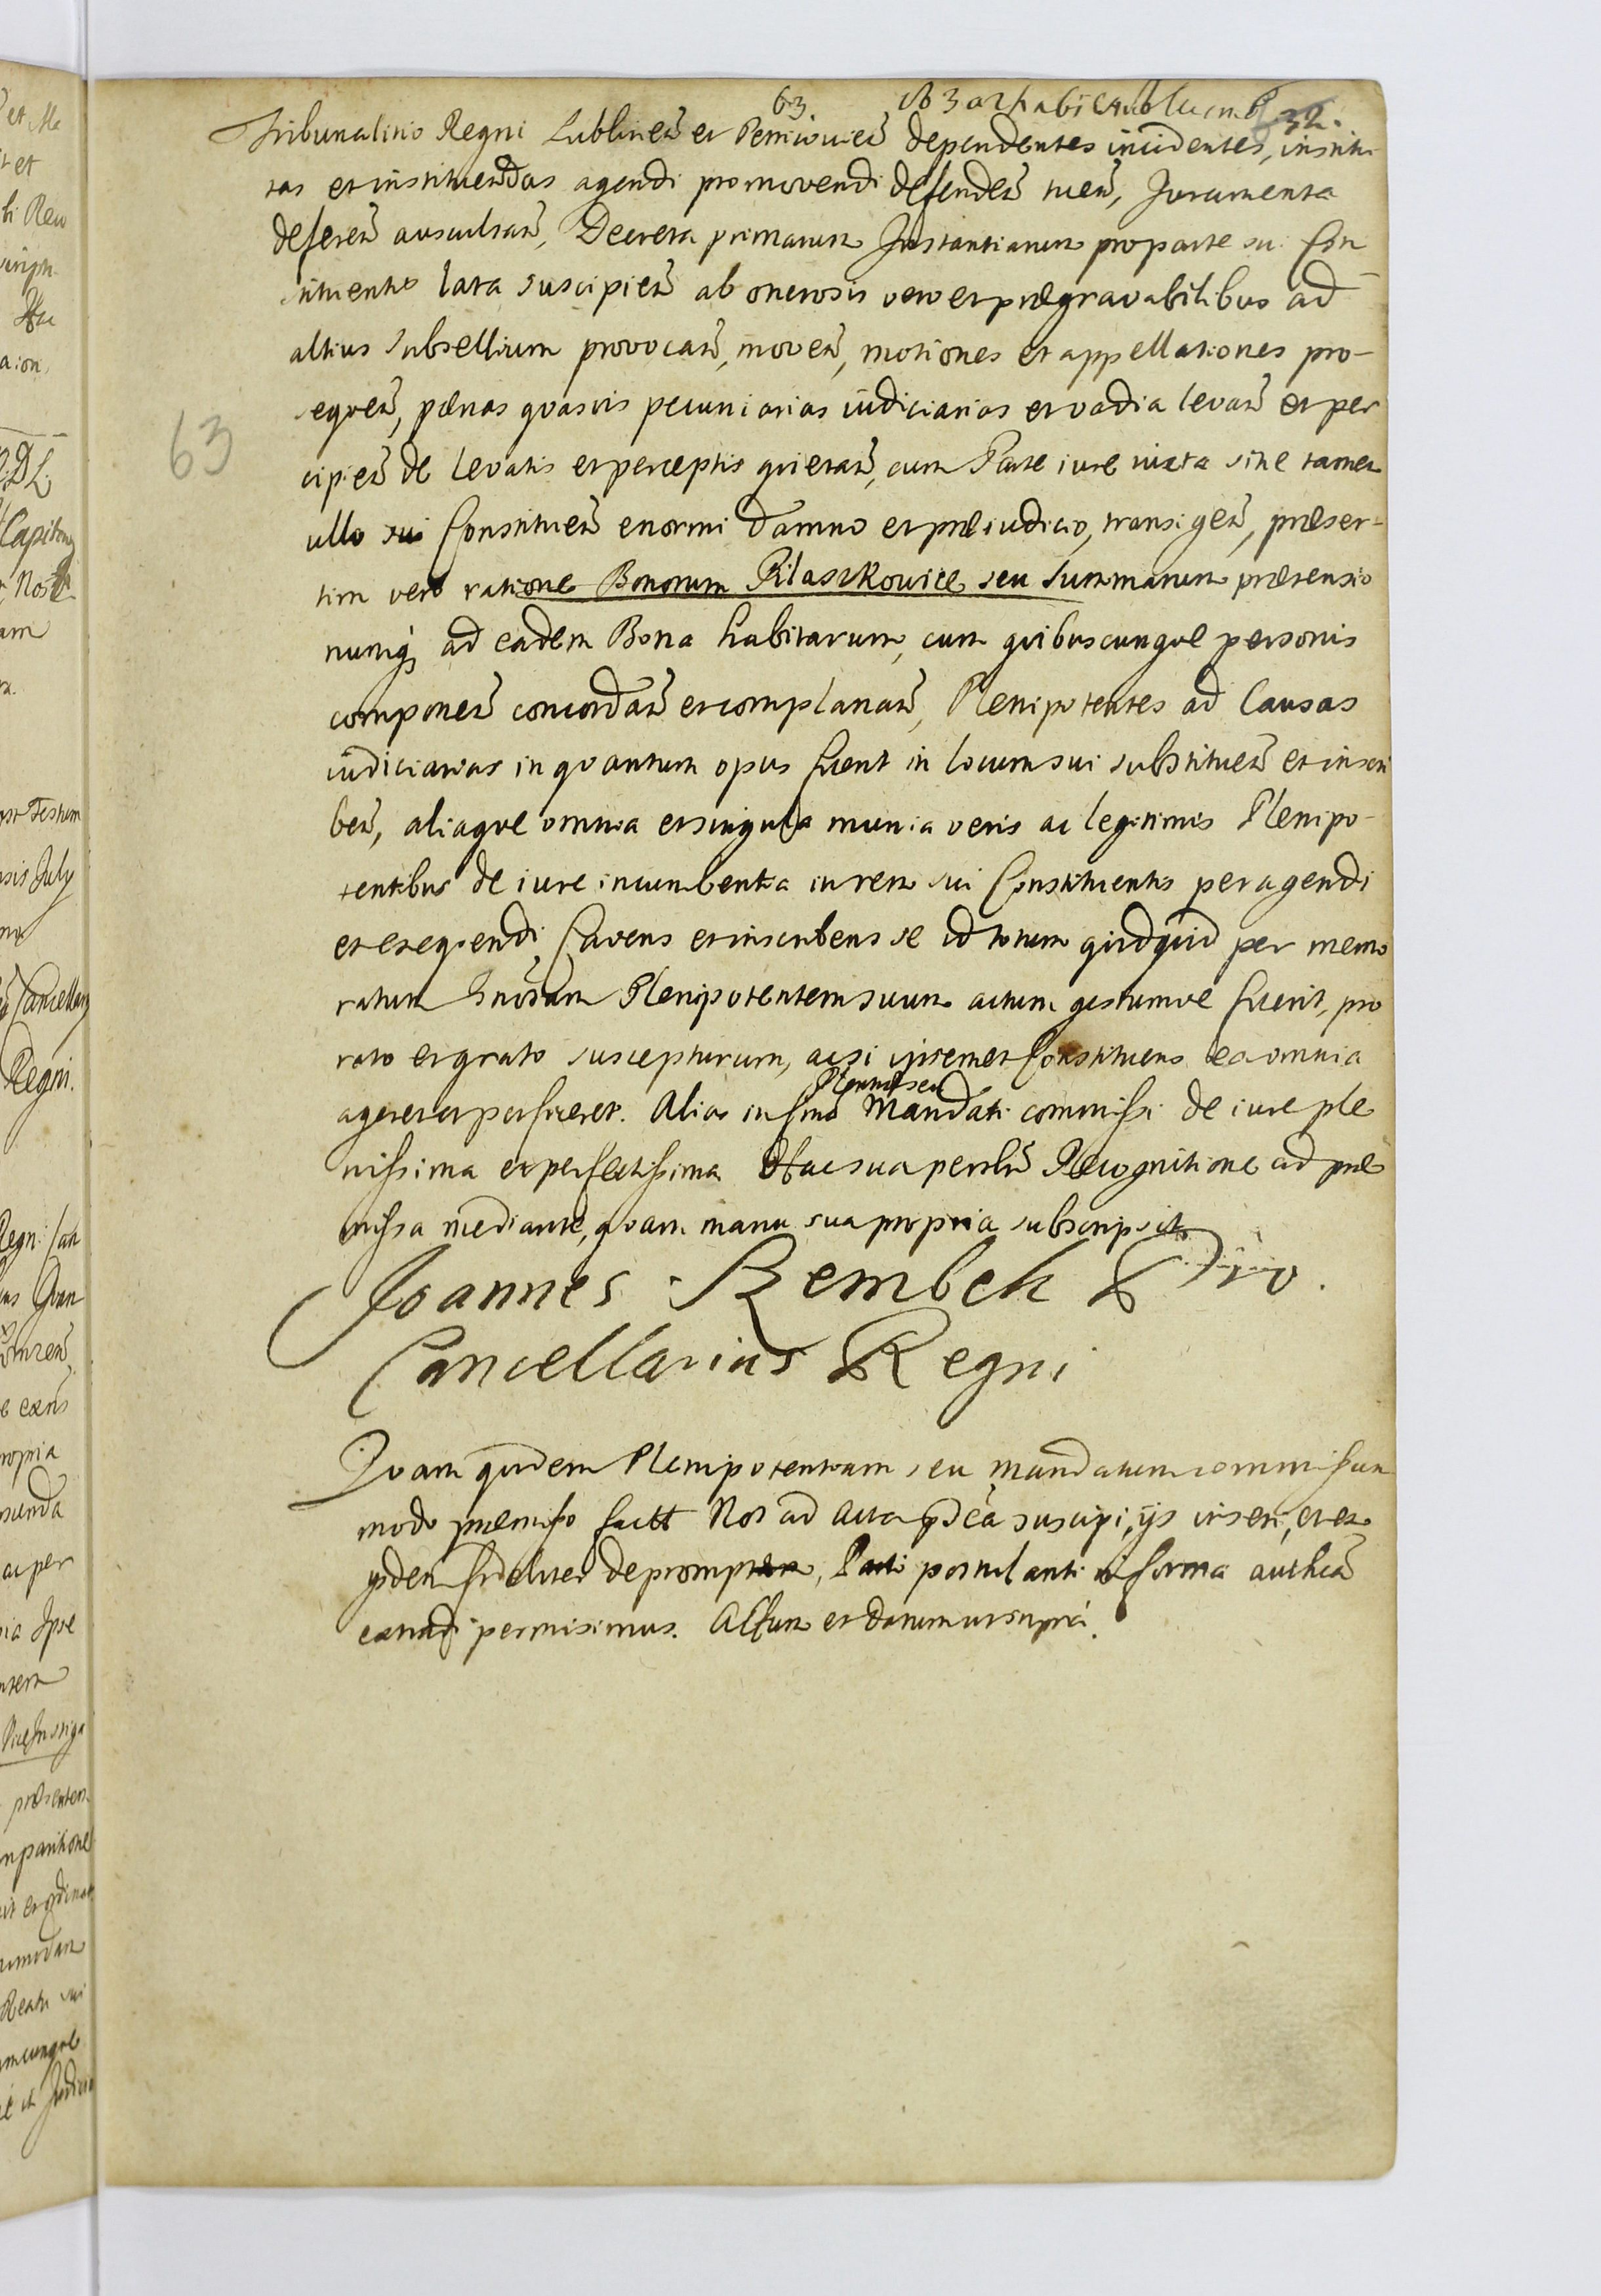 63
32.
Tribunalitio Regni Lublineñ et Petricovieñ dependentes incidentes, institu
tas et instituendas agendi promovendi defendeñ tueñ, Juramenta
defereñ auscultañ, Decreta primarum Instantiarum pro parte sui Con
stituentis lata suscipieñ ab onerosis vero et prægravabilibus ad
altius subsellium provocañ, moveñ, motiones et appellationes pro-
sequeñ, pænas quasvis pecuniarias iudiciarias et vadia levañ et per
63
cipieñ de levatis et perceptis quietañ, cum Parte iure victa sine tamen
ullo sui Constitueñ enormi damno et præiudicio, transigeñ, præser=
tim vero ratione Bonorum Pilaszkowice seu Summarum prætensio
numq; ad eadem Bona habitarum, cum quibuscunque personis
componeñ concordañ et complanañ, Plenipotentes ad Causas
iudiciarias in quantum opus fuerit in locum sui substitueñ et inscri
beñ, aliaque omnia et singula munia veris ac legitimis Plenipo-
tentibus de iure incumbentia in rem sui Constituentis peragendi
et exequendi, Cavens et inscribens se id totum quidquid per memo
ratum Plenipotentem suum actum gestumve fuerit, pro
rato et grato suscepturum, ac si ipsemet Constituens ea omnia
ageret et perficeret. Alias in sino Mandati commissi de iure ple
nissima et perfectissima Hac sua Recognitione ad præ
missa mediante, quam manu sua propria subscripsit
Joannes Rembek Pro
Cancellarius Regni
Quam quidem Plenipotentiam seu mandatum commissum
modo præmisso Nos ad Acta suscipi, ijs inseri, et ex
ijsdem fideliter depromptam, Parti postulanti in forma autheñ
extradi permisimus. Actum et datum ut supra.